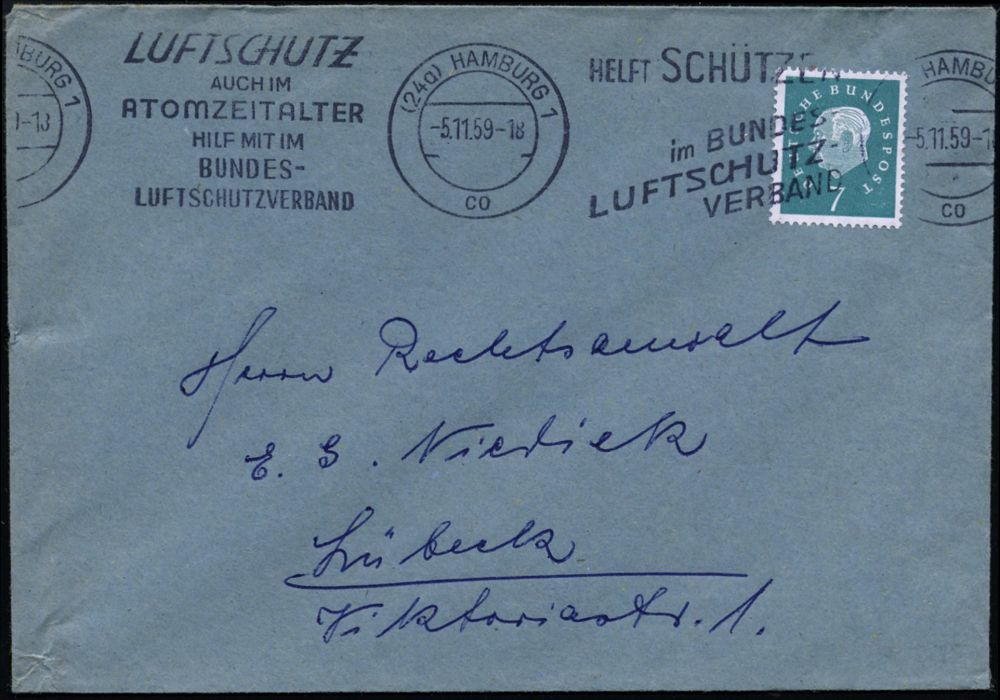 HAMBURG 1
LUFTSCHUTZ
AUCH IM
ATOMZEITALTER
HILF MIT IM
BUNDES-
LUFTSCHUTZVERBAND
(24a) HAMBURG 1
-5.11.59-18
CO
HELFT SCHÜTZEN
im BUNDES-
LUFTSCHUTZ-
VERBAND
DEUTSCHE BUNDESPOST
7
HAMBU
-5.11.59-18
CO
Herrn Rechtsanwalt
E. G. Niediek
Lübeck
Viktoriastr. 1.